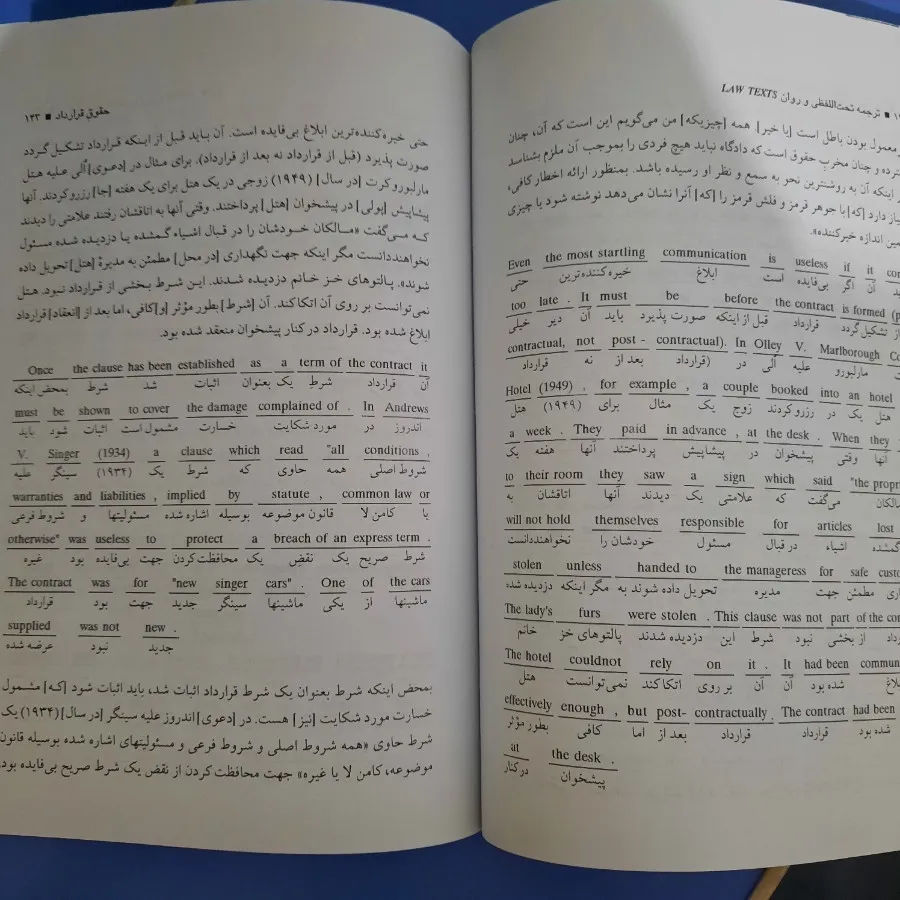 ترجمه تحت‌اللفظی و روان LAW TEXTS
معمول بودن باطل است [یا خیر]. همه [چیزیکه] من می‌گویم این است که آن، چنان
و چنان مخرب حقوق است که دادگاه نباید هیچ فردی را بموجب آن ملزم بشناسد
اینکه آن به روشنترین نحو به سمع و نظر او رسیده باشد. بمنظور ارائه اخطار کافی،
دارد [که] با جوهر قرمز و فلش قرمز را [که] آنرا نشان می‌دهد نوشته شود یا چیزی
اندازه خبرکننده».
Even the most startling communication is useless if it
حتی خیره‌کننده‌ترین ابلاغ است بی‌فایده اگر آن
too late . It must be before the contract is formed
خیلی دیر آن باید صورت پذیرد قبل از اینکه قرارداد تشکیل گردد
contractual, not post - contractual). In Olley V. Marlborough
قرارداد نه بعد از (قرارداد در آلی علیه مارلبورو
Hotel (1949) , for example , a couple booked into an hotel
هتل (۱۹۴۹) برای مثال یک زوج رزرو کردند در یک هتل
a week . They paid in advance , at the desk . When they
یک هفته آنها پرداختند پیشاپیش در پیشخوان وقتی آنها
to their room they saw a sign which said "the
به اتاقشان آنها دیدند یک علامتی که می‌گفت مالکان
will not hold themselves responsible for articles lost
نخواهنددانست خودشان را مسئول در قبال اشیاء گمشده
stolen unless handed to the manageress for safe
دزدیده شده مگر اینکه تحویل داده شوند به مدیره جهت مطمئن
The lady's furs were stolen . This clause was not part of the
خانم پالتوهای خز دزدیده شدند این شرط نبود بخشی از
The hotel couldnot rely on it . It had been
هتل نمی‌توانست اتکاکند بر روی آن آن شده بود
effectively enough , but post- contractually. The contract had been
بطور مؤثر کافی اما بعد از قرارداد قرارداد شده بود
at the desk .
درکنار پیشخوان
حقوق قرارداد ■ ۱۴۳
حتی خیره‌کننده‌ترین ابلاغ بی‌فایده است. آن باید قبل از اینکه قرارداد تشکیل گردد
صورت پذیرد (قبل از قرارداد نه بعد از قرارداد). برای مثال در [دعوی] آلی علیه هتل
مارلبوروکرت [در سال] (۱۹۴۹) زوجی در یک هتل برای یک هفته [جا] رزرو کردند. آنها
پیشاپیش [پولی] در پیشخوان [هتل] پرداختند. وقتی آنها به اتاقشان رفتند علامتی را دیدند
که می‌گفت «مالکان خودشان را در قبال اشیاء گمشده یا دزدیده شده مسئول
نخواهنددانست مگر اینکه جهت نگهداری [در محل] مطمئن به مدیرۀ [هتل] تحویل داده
شوند». پالتوهای خز خانم دزدیده شدند. این شرط بخشی از قرارداد نبود. هتل
نمی‌توانست بر روی آن اتکاکند. آن [شرط] بطور مؤثر [و] کافی، اما بعد از [انعقاد] قرارداد
ابلاغ شده بود. قرارداد درکنار پیشخوان منعقد شده بود.
Once the clause has been established as a term of the contract it
بمحض اینکه شرط اثبات شد بعنوان یک شرطِ قرارداد آن
must be shown to cover the damage complained of . In Andrews
باید شود اثبات مشمول است خسارت مورد شکایت در اندروز
V. Singer (1934) a clause which read "all conditions,
علیه سینگر (۱۹۳۴) یک شرط که حاوی همه شروط اصلی
warranties and liabilities , implied by statute , common law or
شروط فرعی و مسئولیتها اشاره شده بوسیله قانون موضوعه کامن لا یا
otherwise" was useless to protect a breach of an express term .
غیره بود بی‌فایده جهت محافظت‌کردن یک نقض یک صریح شرط
The contract was for "new singer cars". One of the cars
قرارداد بود جهت جدید سینگر ماشینها یکی از ماشینها
supplied was not new .
عرضه شده نبود جدید
بمحض اینکه شرط بعنوان یک شرط قرارداد اثبات شد، باید اثبات شود [که] مشمول
خسارت مورد شکایت [نیز] هست. در [دعوی] اندروز علیه سینگر [در سال] (۱۹۳۴) یک
شرط حاوی «همه شروط اصلی و شروط فرعی و مسئولیتهای اشاره شده بوسیله قانون
موضوعه، کامن لا یا غیره» جهت محافظت کردن از نقض یک شرط صریح بی‌فایده بود.